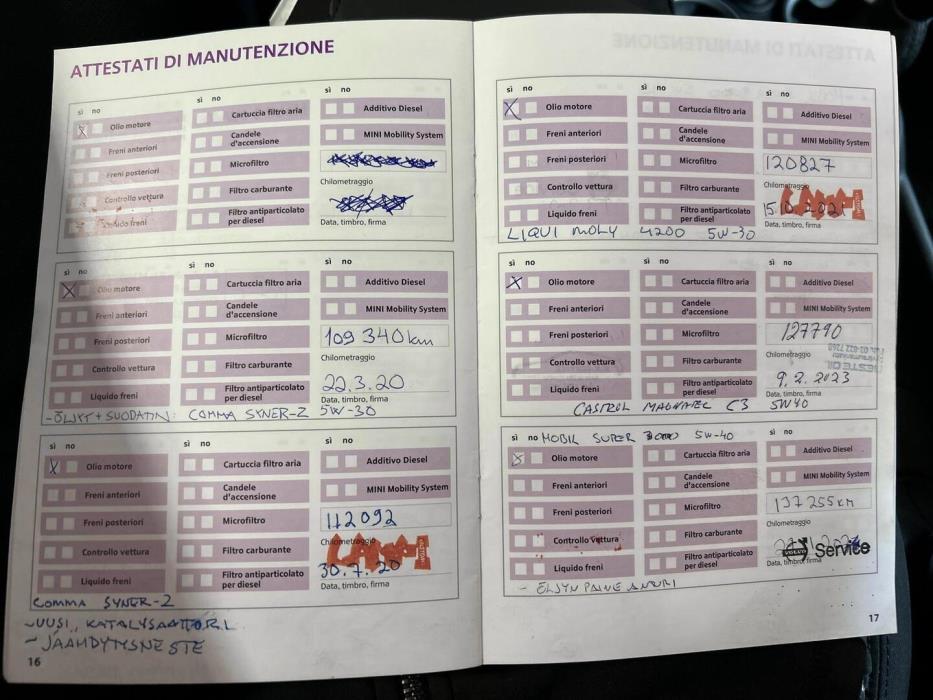 ATTESTATI DI MANUTENZIONE
sì no
Olio motore
Freni anteriori
Freni posteriori
Controllo vettura
Liquido freni
sì no
Cartuccia filtro aria
Candele
d'accensione
Microfiltro
Filtro carburante
Filtro antiparticolato
per diesel
sì no
Additivo Diesel
MINI Mobility System
Chilometraggio
Data, timbro, firma
sì no
Olio motore
Freni anteriori
Freni posteriori
Controllo vettura
Liquido freni
sì no
Cartuccia filtro aria
Candele
d'accensione
Microfiltro
Filtro carburante
Filtro antiparticolato
per diesel
sì no
Additivo Diesel
MINI Mobility System
109 340 km
Chilometraggio
22.3.20
Data, timbro, firma
- ÖLJYT + SUODATIN: COMMA SYNER-Z 5W-30
sì no
Olio motore
Freni anteriori
Freni posteriori
Controllo vettura
Liquido freni
sì no
Cartuccia filtro aria
Candele
d'accensione
Microfiltro
Filtro carburante
Filtro antiparticolato
per diesel
sì no
Additivo Diesel
MINI Mobility System
112092
Chilometraggio
30.7.20
Data, timbro, firma
COMMA SYNER-Z
- UUSI KATALYSAATTORI
- JÄÄHDYTYSNESTE
16
sì no
Olio motore
Freni anteriori
Freni posteriori
Controllo vettura
Liquido freni
sì no
Cartuccia filtro aria
Candele
d'accensione
Microfiltro
Filtro carburante
Filtro antiparticolato
per diesel
sì no
Additivo Diesel
MINI Mobility System
120827
Chilometraggio
Data, timbro, firma
LIQUI MOLY 4200 5W-30
sì no
Olio motore
Freni anteriori
Freni posteriori
Controllo vettura
Liquido freni
sì no
Cartuccia filtro aria
Candele
d'accensione
Microfiltro
Filtro carburante
Filtro antiparticolato
per diesel
sì no
Additivo Diesel
MINI Mobility System
127790
Chilometraggio
9.2.2023
Data, timbro, firma
CASTROL MAGNATEC C3 5W40
sì no
MOBIL SUPER 3000 5W-40
Olio motore
Freni anteriori
Freni posteriori
Controllo vettura
Liquido freni
Cartuccia filtro aria
Candele
d'accensione
Microfiltro
Filtro carburante
Filtro antiparticolato
per diesel
sì no
Additivo Diesel
MINI Mobility System
137255 KM
Chilometraggio
VOLVO Service
Data, timbro, firma
- ÖLJYN PAINE ANTURI
17